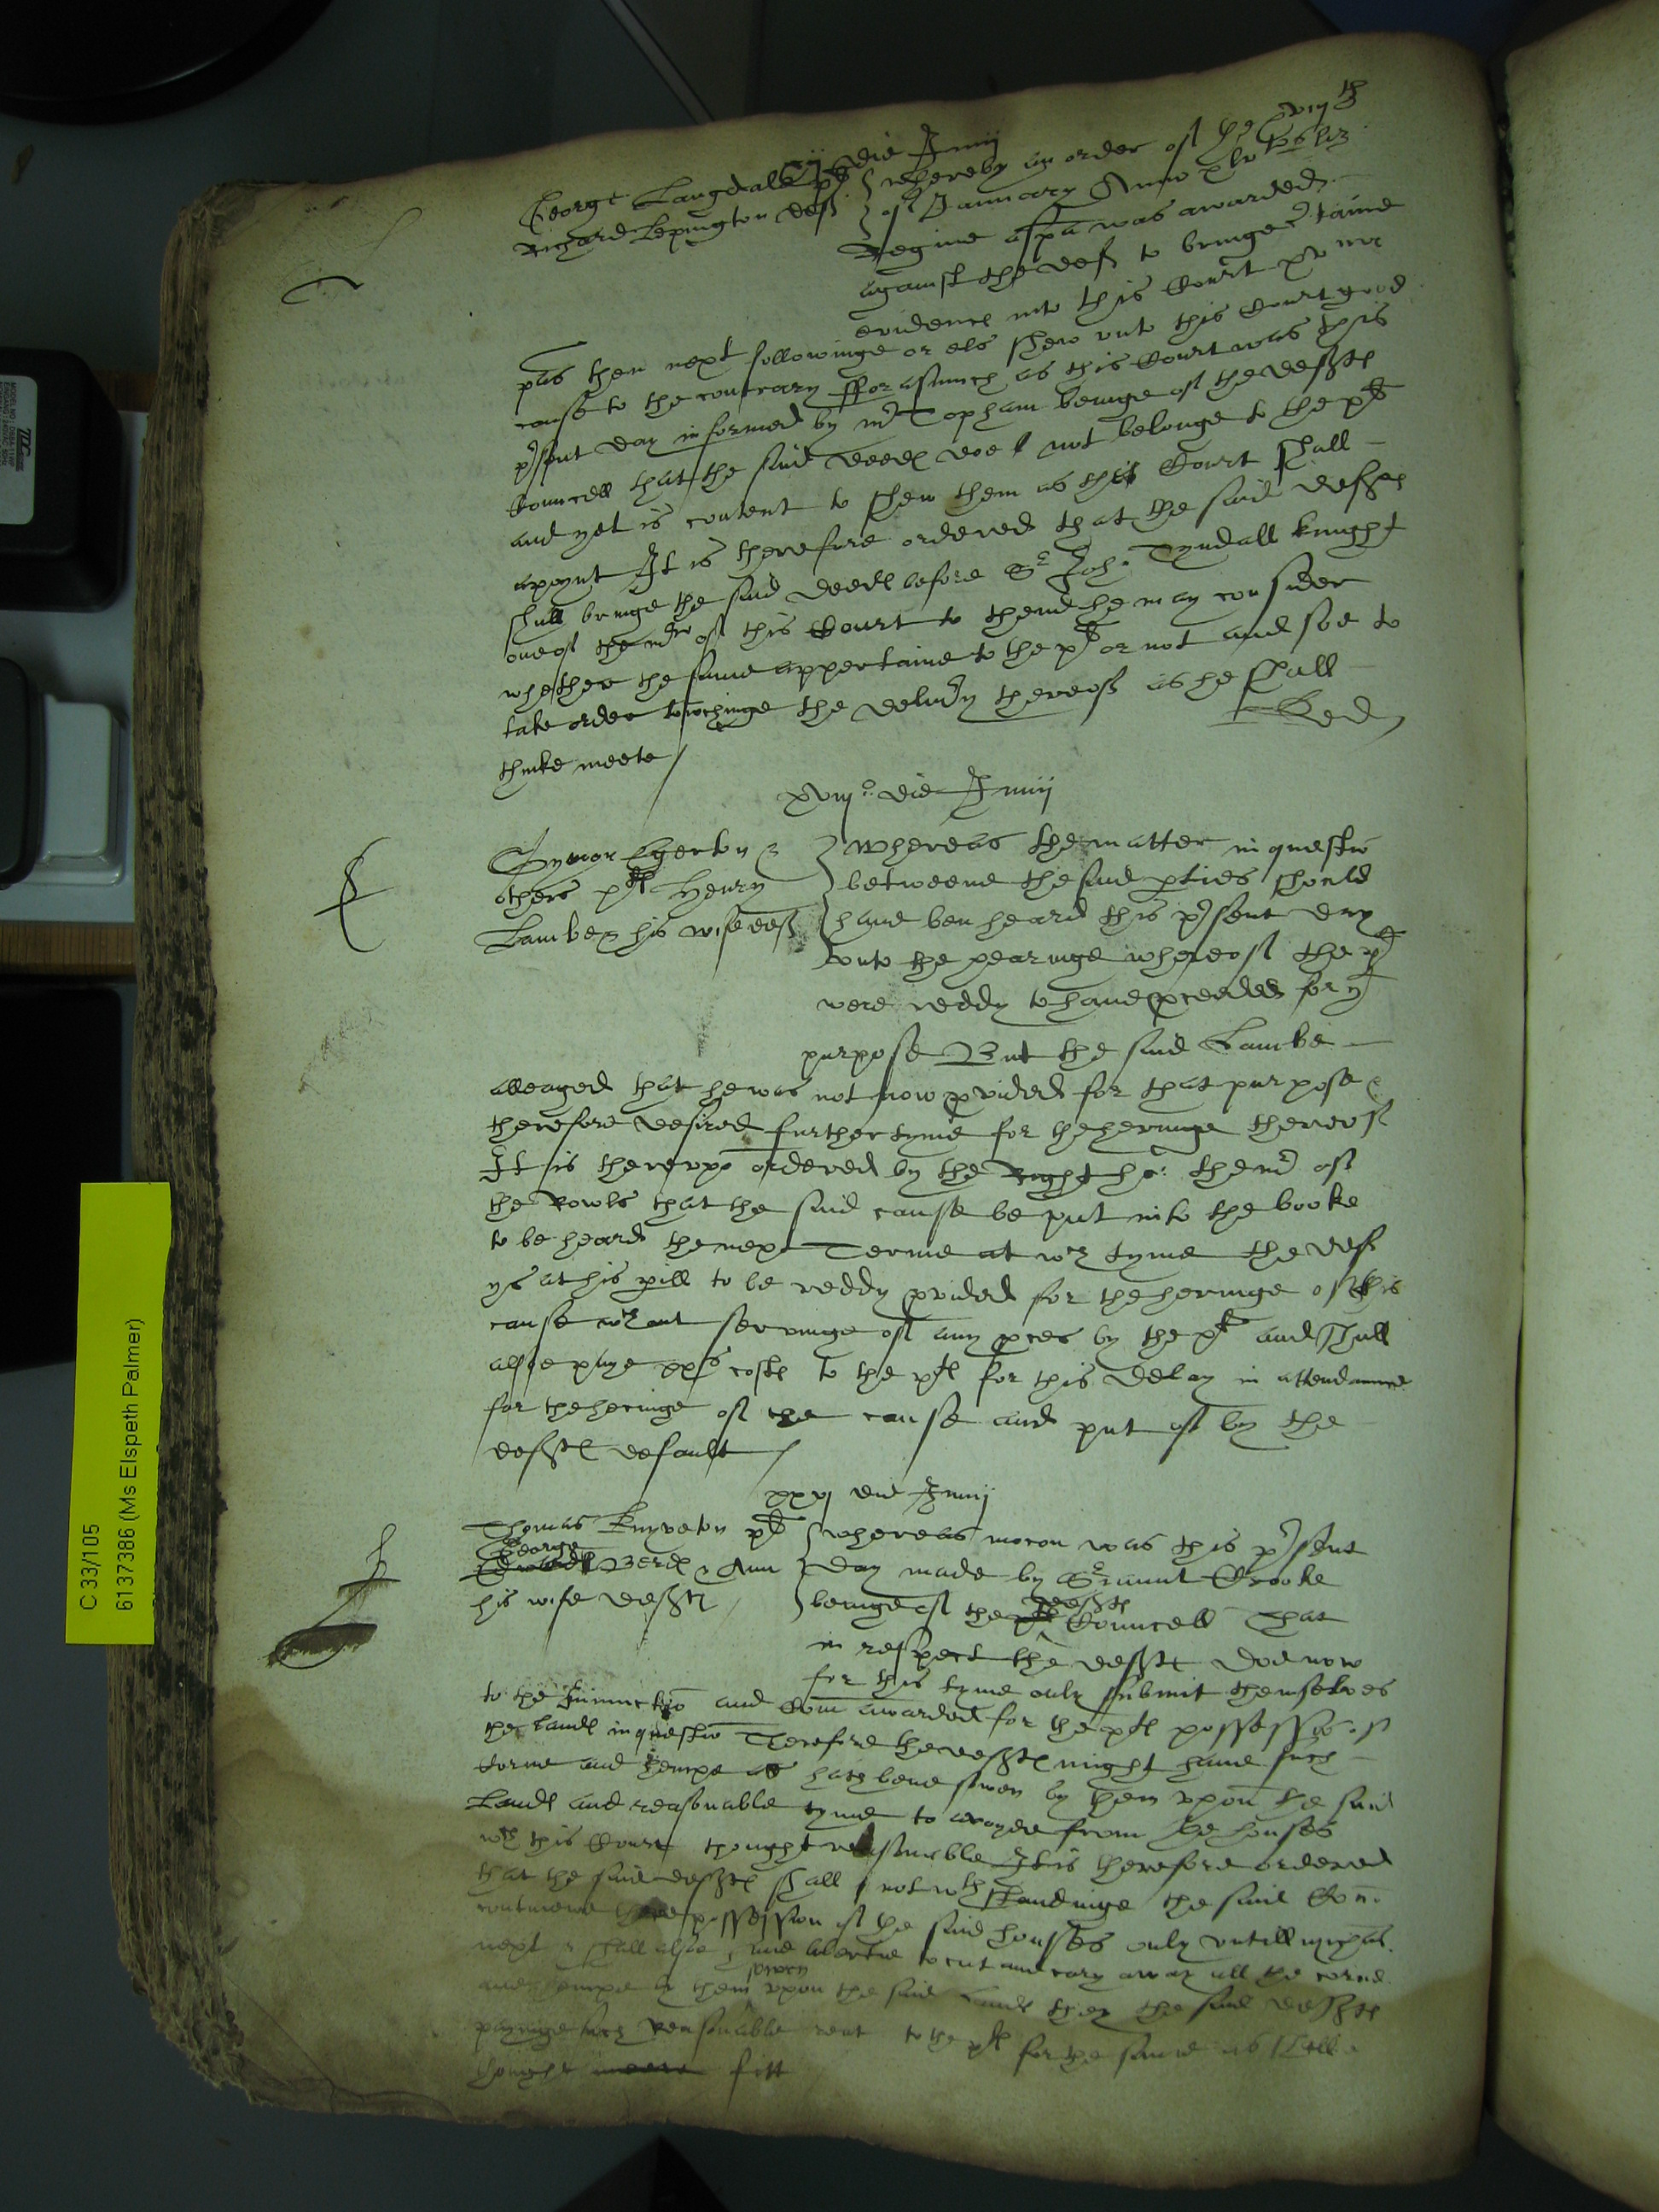 die Junij
George Langdale plt } whereby an order of the xviijth
Richard Lepington deft } of January Anno xlvto Eliz
Regine a spa was awarded
against the deft to bringe certaine
evidence into this Court xv mic
pas then next followinge or els shew unto this Court good
cause to the contrary Fforasmuch as this Court was this
pſent day informed by mr Topham beinge of the deftes
Councell that the said deedes doe not belonge to the plt
and yet is content to shew them as this Court shall
apoynt It is therefore ordered that the said deftes
shall bringe the said deedes before Sr Joh: Tyndall knight
one of the mrs of this Court to thend he may consider
whether the same appertaine to the plt or not and soe to
take order towchinge the delivy thereof as he shall
thinke meete
xviijo die Junij
Egerton &
others plts Henry
Lambe & his wife deftes
Whereas the matter in questio
betweene the said pties should
have ben heard this pſent day
unto the hearinge whereof the plt
were reddy to have pceeded for yt
purpose But the said Lambe
alleaged that he was not now pvided for that purpose &
therefore desired further tyme for the heringe thereof
It is thereupo ordered by the Right ho: the mr of
the Rowls that the said cause be put into the booke
to be heard the next Terme at wch tyme the deft
ys at his pill to be reddy pvided for the heringe of this
cause wthout servinge of any pces by the plt and shall
alsoe paye xxs costes to the plts for this delay in attendaunce
for the heringe of the cause and put of by the
deftes default
xxvj die Junij
Thomas Knyveton plt } whereas mocon was this pſent
George
Berd & Ann } day made by Sriaunt Crooke
his wife deftes } beinge of the deftes Councell That
in respect the deftes doe now
for this tyme only submit themselves
to the Iniunctio and Com awarded for the plts possessio of
the landes in questio Therefore the deftes might have such
Corne and hempe as hath bene sowen by them upon the said
Landes and reasonable tyme to avoyde from the houses
wch this Court thought reasonable It is therefore ordered
that the said deftes shall notwthstandinge the said Com
contynewe the possession of the said houses only untill michas
next & shall alsoe have libertie to cut and cary away all the corne
and hempe by them sowen upon the said Landes they the said deftes
payinge such reasonable rent to the plt for the same as shalbe
thought fitt
C 33/105
6137386 (Ms Elspeth Palmer)